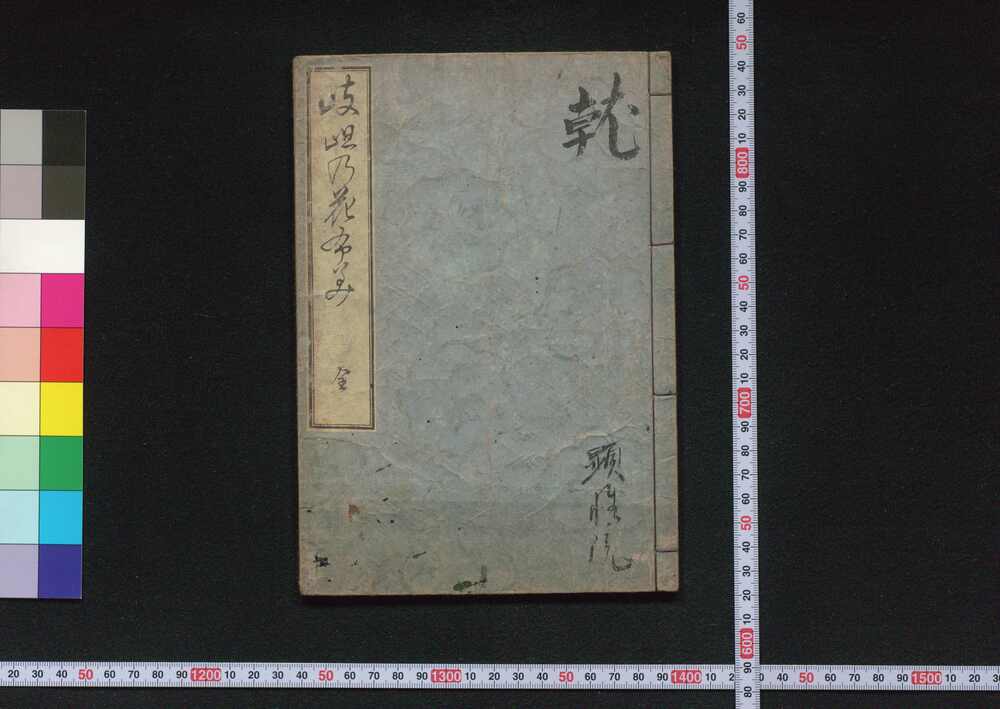 乾
岐岨乃花布美
全
60 50 40 30 20 10 800 90 80 70 60 50 40 30 20 10 700 90 80 70 60 50 40 30 20 10 600 90 80
20 30 40 50 60 70 80 90 1200 10 20 30 40 50 60 70 80 90 1300 10 20 30 40 50 60 70 80 90 1400 10 20 40 50 60 70 80 90 1500 10 20